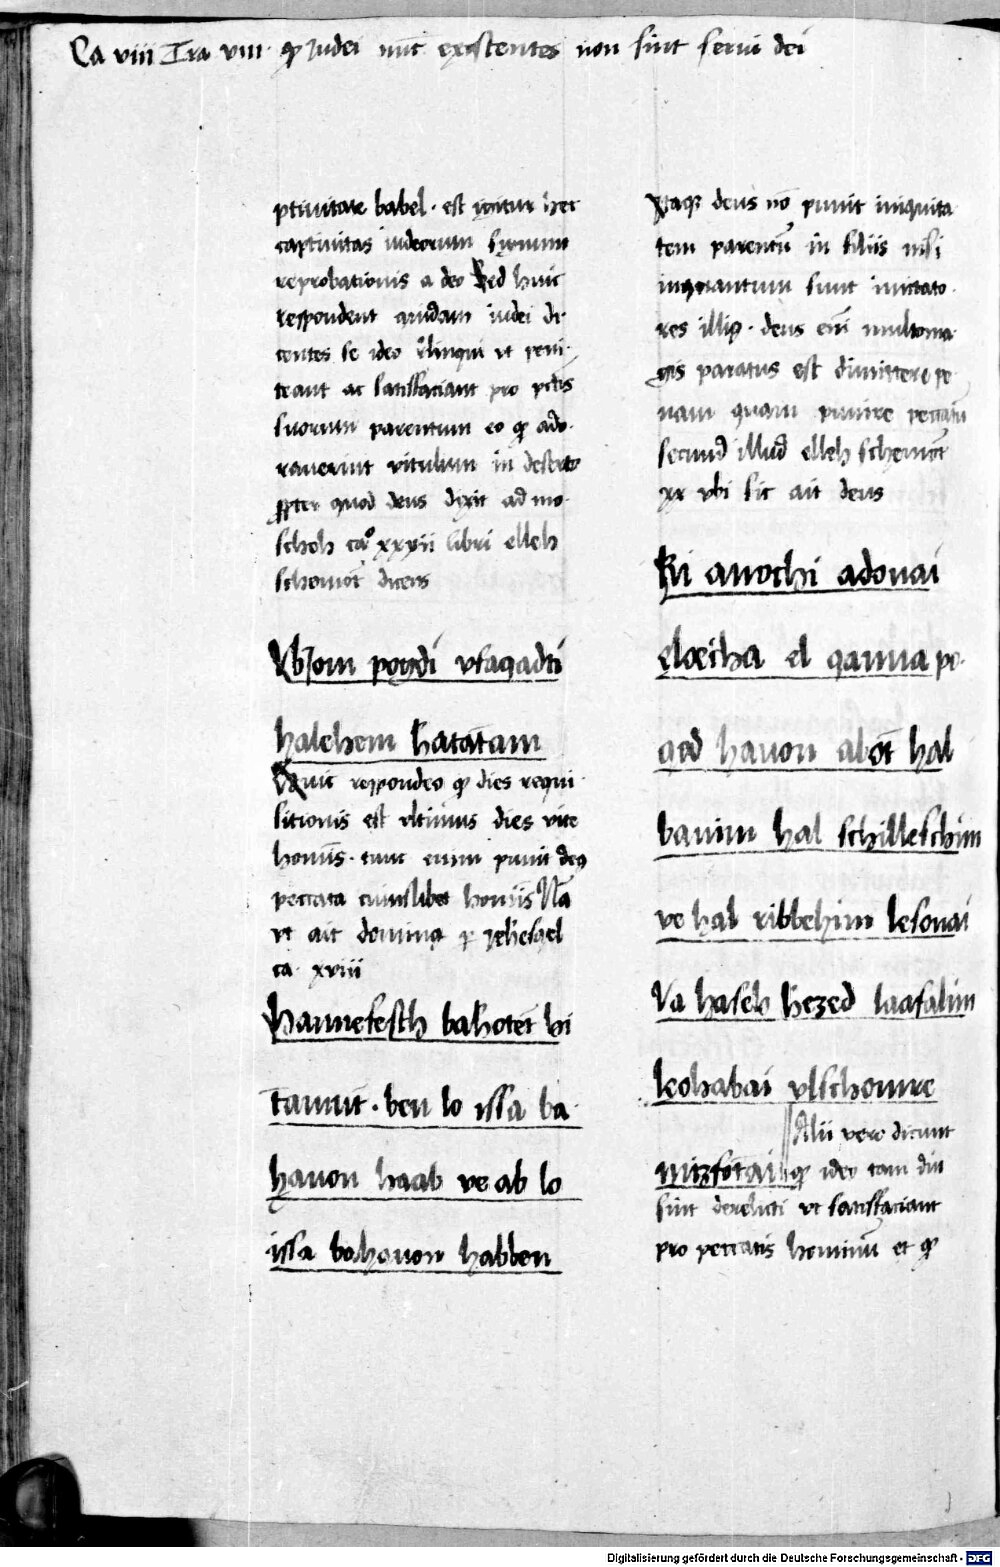 Ca viii Tra viii ꝙ Judei nūc existentes non sint serui dei
ptiuitate babel · est igitur hec
captiuitas iudeorum signum
reprobationis a deo Sed huic
respondent quidam iudei di-
centes se ideo relinqui vt peni-
teant ac satisfaciant pro pctis
suorum parentum eo ꝙ ado-
rauerint vitulum in deserto
ꝓpter quod deus dixit ad mo-
scheh caº xxxii libri elleh
schemot dicens
Vbiom poqdi vfaqadti
halehem hatatam
Quic respondeo ꝙ dies requi-
sitionis est vltimus dies vite
homīs · tunc enim punit deꝰ
peccata cuiuslibet hominis Nā
vt ait dominꝰ ꝑ Jehesqel
ca · xviii
Hannefesch bahotet hi
tamut · ben lo issa ba-
hauon haab ve ab lo
issa bahauon habben
Itaqꝫ deus nō punit iniquita-
tem parentū in filiis nisi
inquantum sunt imitato-
res illiꝰ · deus enī multoma-
gis paratus est dimittere pe-
nam quam punire peccatū
secund illud elleh schemot
xx vbi sic ait deus
Ki anochi adonai
eloeicha el qanna po-
qed hauon abot hal
banim hal schilleschim
ve hal ribbehim lesonai
Va haseh hezed laafalim
leohabai vlschomre
mizfotai || Alii vero dicunt
ꝙ ideo tam diu
sint derelicti vt satisfaciant
pro peccatis hominū et ꝙ
Digitalisierung gefördert durch die Deutsche Forschungsgemeinschaft - DFG